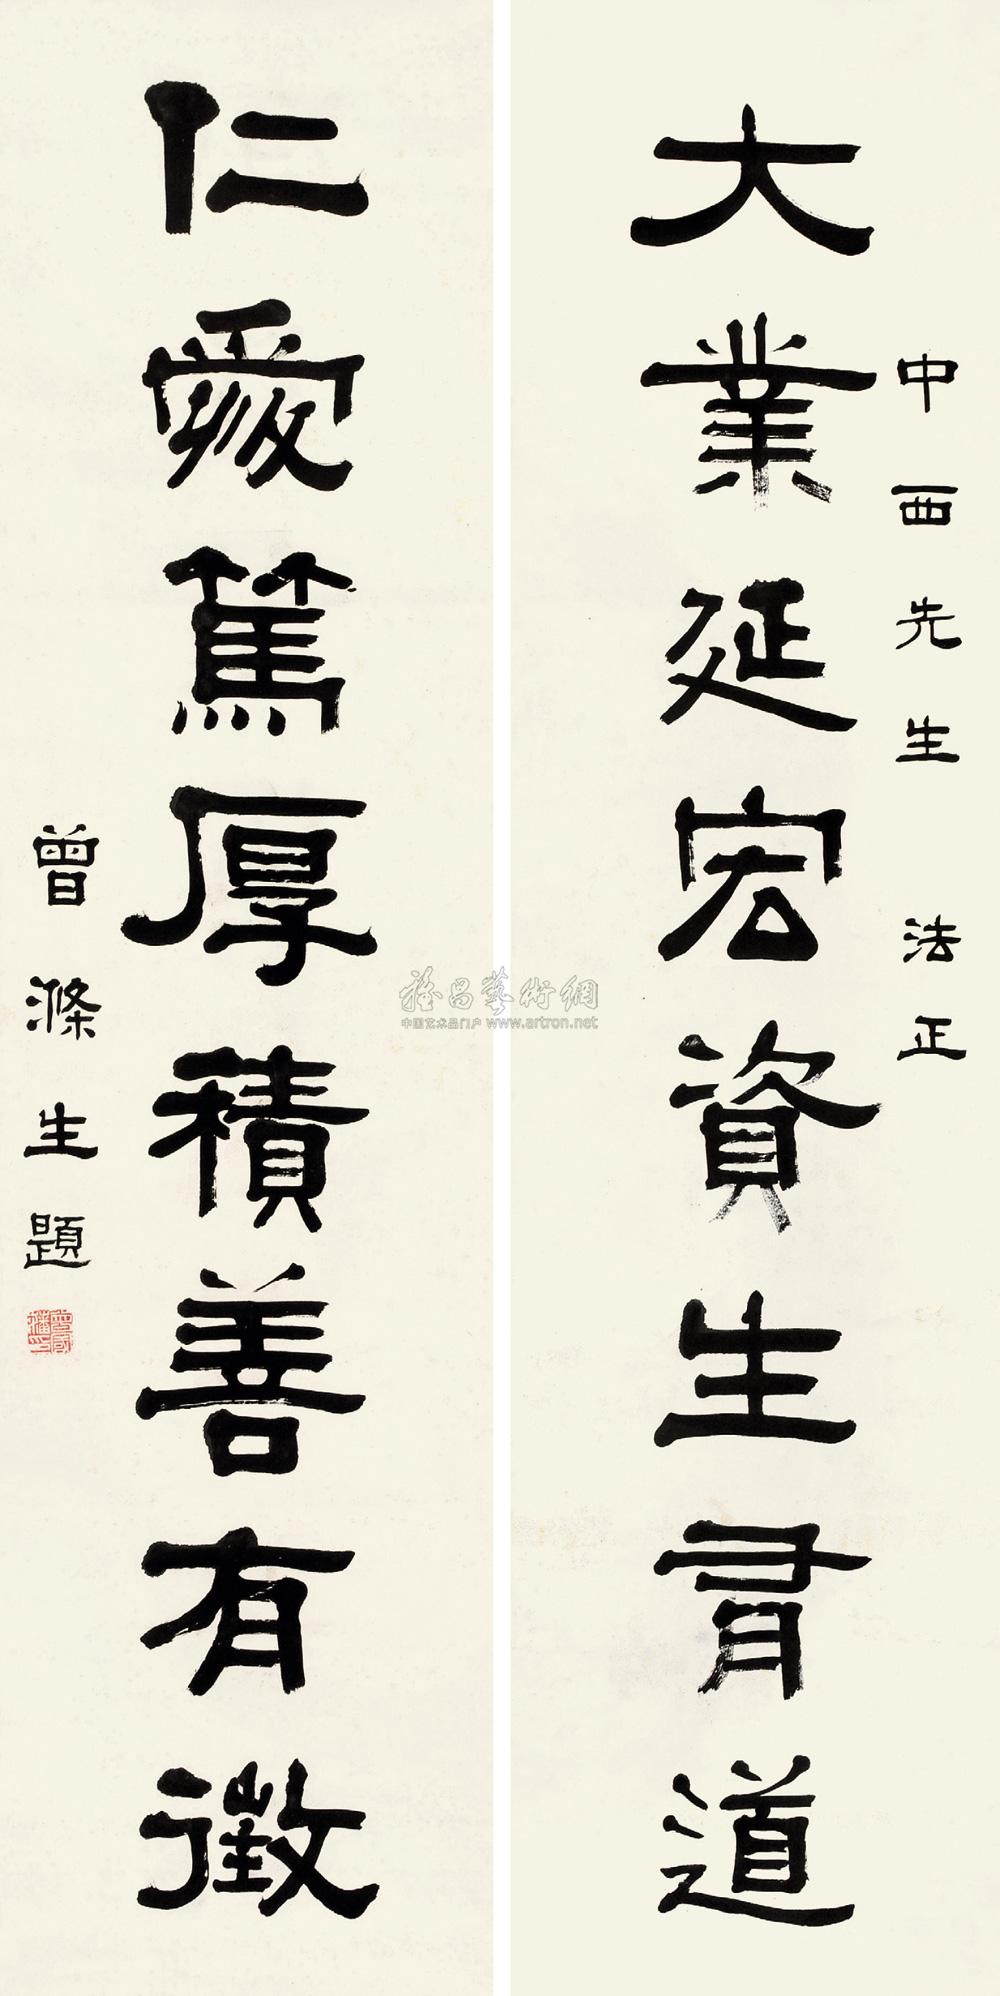 中西先生 法正
大業延宏資生有道
仁愛篤厚積善有徵
曾滌生題
曾國藩印
雅昌藝術網
中国艺术品门户 www.artron.net